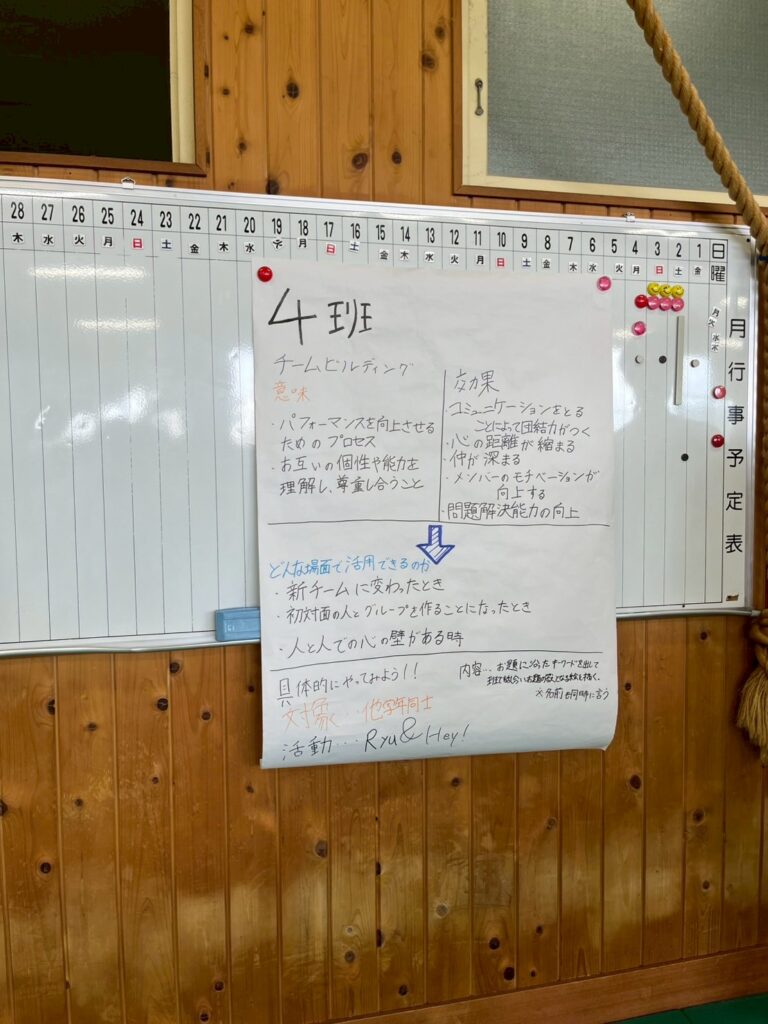 28 27 26 25 24 23 22 21 20 19 18 17 16 15 14 13 12 11 10 9 8 7 6 5 4 3 2 1 日
木 水 火 月 日 土 金 木 水 月 日 土 金 木 水 火 月 日 土 金 木 水 火 月 日 土 金 曜
月行事予定表
4班
チームビルディング
意味
・パフォーマンスを向上させる
ためのプロセス
・お互いの個性や能力を
理解し、尊重し合うこと
効果
・コミュニケーションをとる
ことによって団結力がつく
・心の距離が縮まる
・仲が深まる
・メンバーのモチベーションが
向上する
・問題解決能力の向上
どんな場面で活用できるのか
・新チームに変わったとき
・初対面の人とグループを作ることになったとき
・人と人での心の壁がある時
具体的にやってみよう!!
対象…他学年同士
活動…Ryu&Hey!
内容…お題に沿ったキーワードを出して
※名前も同時に言う